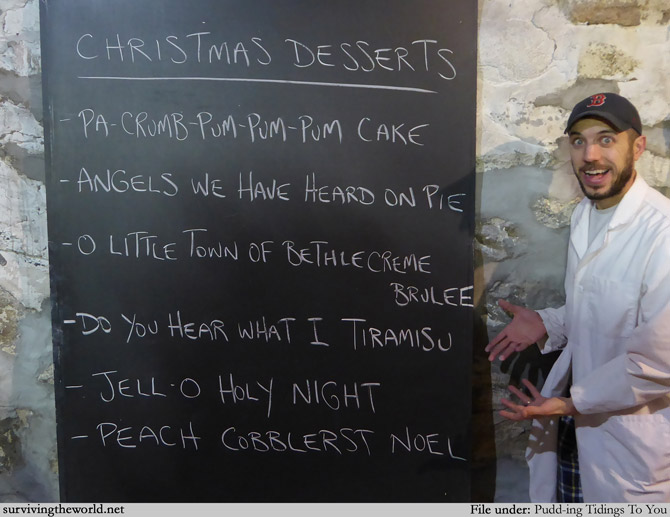 CHRISTMAS DESSERTS
- PA-CRUMB-PUM-PUM-PUM CAKE
- ANGELS WE HAVE HEARD ON PIE
- O LITTLE TOWN OF BETHLECREME
BRULEE
- DO YOU HEAR WHAT I TIRAMISU
- JELL-O HOLY NIGHT
- PEACH COBBLERST NOEL
B
survivingtheworld.net
File under: Pudd-ing Tidings To You